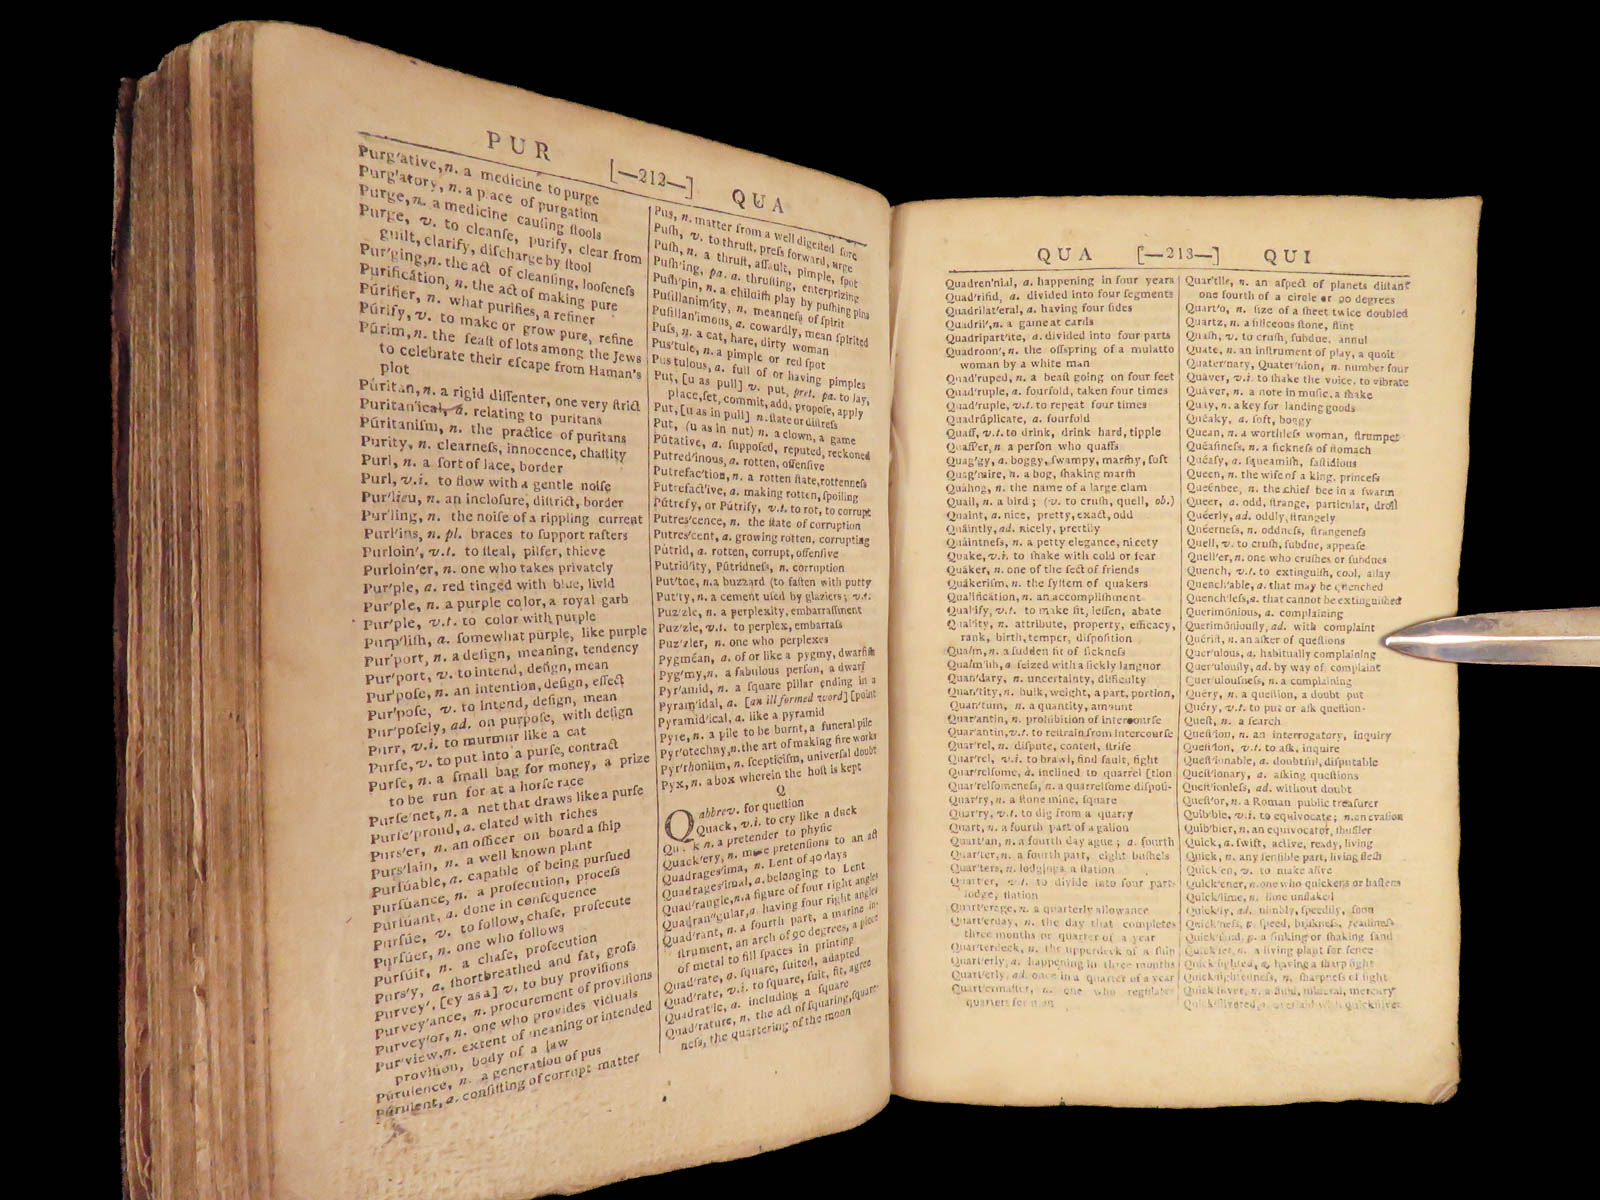 PUR [—212—] QUA
Purg'ative, n. a medicine to purge
Purg'atory, n. a place of purgation
Purge, n. a medicine cauſing ſtools
Purge, v. to cleanſe, purify, clear from
guilt, clarify, diſcharge by ſtool
Pur'ging, n. the act of cleanſing, looſeneſs
Purificátion, n. the act of making pure
Púrifier, n. what purifies, a refiner
Púrify, v. to make or grow pure, refine
Púrim, n. the feaſt of lots among the Jews
to celebrate their eſcape from Haman's
plot
Púritan, n. a rigid diſſenter, one very ſtrict
Puritan'ical, a. relating to puritans
Púritaniſm, n. the practice of puritans
Purity, n. clearneſs, innocence, chaſtity
Purl, n. a ſort of lace, border
Purl, v.i. to flow with a gentle noiſe
Pur'lieu, n. an incloſure, diſtrict, border
Pur'ling, n. the noiſe of a rippling current
Purl'ins, n. pl. braces to ſupport rafters
Purloin', v.t. to ſteal, pilfer, thieve
Purloin'er, n. one who takes privately
Pur'ple, a. red tinged with blue, livid
Pur'ple, n. a purple color, a royal garb
Pur'ple, v.t. to color with purple
Purp'liſh, a. ſomewhat purple, like purple
Pur'port, n. a deſign, meaning, tendency
Pur'port, v. to intend, deſign, mean
Pur'poſe, n. an intention, deſign, effect
Pur'poſe, v. to intend, deſign, mean
Pur'poſely, ad. on purpoſe, with deſign
Purr, v.i. to murmur like a cat
Purſe, v. to put into a purſe, contract
Purſe, n. a ſmall bag for money, a prize
to be run for at a horſe race
Purſe'net, n. a net that draws like a purſe
Purſe'proud, a. elated with riches
Purs'er, n. an officer on board a ſhip
Purs'lain, n. a well known plant
Purſúable, a. capable of being purſued
Purſúance, n. a proſecution, proceſs
Purſúant, a. done in conſequence
Purſúe, v. to follow, chaſe, proſecute
Purſúer, n. one who follows
Purſúit, n. a chaſe, proſecution
Purs'y, a. ſhortbreathed and fat, groſs
Purvey', [ey as a] v. to buy proviſions
Purvey'ance, n. procurement of proviſions
Purvey'or, n. one who provides victuals
Pur'view, n. extent of meaning or intended
proviſion, body of a law
Púrulence, n. a generation of pus
Púrulent, a. conſiſting of corrupt matter
Pus, n. matter from a well digeſted ſore
Puſh, v. to thruſt, preſs forward, urge
Puſh, n. a thruſt, aſſault, pimple, ſpot
Puſh'ing, pa. a. thruſting, enterprizing
Puſh'pin, n. a childiſh play by puſhing pins
Puſillanim'ity, n. meanneſs of ſpirit
Puſillan'imous, a. cowardly, mean ſpirited
Puſs, n. a cat, hare, dirty woman
Pus'tule, n. a pimple or red ſpot
Pustulous, a. full of or having pimples
Put, [u as pull] v. put, pret. pa. to lay,
place, ſet, commit, add, propoſe, apply
Put, [u as in pull] n. ſtate or diſtreſs
Put, (u as in nut) n. a clown, a game
Pútative, a. ſuppoſed, reputed, reckoned
Putred'inous, a. rotten, offenſive
Putrefac'tion, n. a rotten ſtate, rottenneſs
Putrefact'ive, a. making rotten, ſpoiling
Pútrefy, or Pútrify, v.t. to rot, to corrupt
Putres'cence, n. the ſtate of corruption
Putres'cent, a. growing rotten, corrupting
Pútrid, a. rotten, corrupt, offenſive
Putrid'ity, Pútridneſs, n. corruption
Put'toc, n. a buzzard (to faſten with putty
Put'ty, n. a cement uſed by glaziers; v.t.
Puz'zle, n. a perplexity, embarraſſment
Puz'zle, v.t. to perplex, embarraſs
Puz'zler, n. one who perplexes
Pygméan, a. of or like a pygmy, dwarfiſh
Pyg'my, n. a fabulous perſon, a dwarf
Pyr'amid, n. a ſquare pillar ending in a
Pyram'idal, a. [an ill formed word] [point
Pyramid'ical, a. like a pyramid
Pyre, n. a pile to be burnt, a funeral pile
Pyr'otechny, n. the art of making fire works
Pyr'rhoniſm, n. ſcepticiſm, univerſal doubt
Pyx, n. a box wherein the hoſt is kept
Q
Q abbrev. for queſtion
Quack, v.i. to cry like a duck
Qu k n. a pretender to phyſic
Quack'ery, n. mere pretenſions to an art
Quadrages'ima, n. Lent of 40 days
Quadrages'imal, a. belonging to Lent
Quad'rangle, n. a figure of four right angles
Quadran'gular, a. having four right angles
Quad'rant, n. a fourth part, a marine in-
ſtrument, an arc of 90 degrees, a piece
of metal to fill ſpaces in printing
Quad'rate, a. ſquare, ſuited, adapted
Quad'rate, v.i. to ſquare, ſuit, fit, agree
Quadrat'ic, a. including a ſquare
Quad'rature, n. the act of ſquaring, ſquare-
neſs, the quartering of the moon
QUA [—213—] QUI
Quadren'nial, a. happening in four years
Quad'rifid, a. divided into four ſegments
Quadrilat'eral, a. having four ſides
Quadril', n. a game at cards
Quadripart'ite, a. divided into four parts
Quadroon', n. the offspring of a mulatto
woman by a white man
Quad'ruped, n. a beaſt going on four feet
Quad'ruple, a. fourfold, taken four times
Quad'ruple, v.t. to repeat four times
Quadrúplicate, a. fourfold
Quaff, v.t. to drink, drink hard, tipple
Quaff'er, n a perſon who quaffs
Quag'gy, a. boggy, ſwampy, marſhy, ſoft
Quag'mire, n. a bog, ſhaking marſh
Quáhog, n. the name of a large clam
Quail, n. a bird; (v. to cruſh, quell, ob.)
Quaint, a. nice, pretty, exact, odd
Quáintly, ad. nicely, prettily
Quáintneſs, n. a petty elegance, nicety
Quake, v.i. to ſhake with cold or fear
Quáker, n. one of the ſect of friends
Quákeriſm, n. the ſyſtem of quakers
Qualificátion, n. an accompliſhment
Qual'ify, v.t. to make fit, leſſen, abate
Qual'ity, n. attribute, property, efficacy,
rank, birth, temper, diſpoſition
Qualm, n. a ſudden fit of ſickneſs
Qualm'iſh, a ſeized with a ſickly languor
Quan'dary, n. uncertainty, difficulty
Quan'tity, n. bulk, weight, a part, portion,
Quan'tum, n. a quantity, amount
Quar'antin, n. prohibition of intercourſe
Quar'antin, v.t. to reſtrain from intercourſe
Quar'rel, n. diſpute, conteſt, ſtrife
Quar'rel, v.i. to brawl, find fault, fight
Quar'relſome, a. inclined to quarrel [tion
Quar'relſomeneſs, n. a quarrelſome diſpoſi-
Quar'ry, n. a ſtone mine, ſquare
Quar'ry, v.t. to dig from a quarry
Quart, n. a fourth part of a gallon
Quart'an, n. a fourth day ague; a. fourth
Quar'ter, n. a fourth part, eight buſhels
Quar'ters, n. lodgings, a ſtation
Quart'er, v.t. to divide into four parts
lodge, ſtation
Quart'erage, n. a quarterly allowance
Quart'erday, n. the day that completes
three months or quarter of a year
Quar'terdeck, n. the upperdeck of a ſhip
Quart'erly, a. happening in three months
Quart'erly, ad. once in a quarter of a year
Quart'ermaſter, n. one who regulates
quarters for men
Quar'tile, n. an aſpect of planets diſtant
one fourth of a circle or 90 degrees
Quart'o, n. ſize of a ſheet twice doubled
Quartz, n. a ſiliceous ſtone, flint
Quaſh, v. to cruſh, ſubdue, annul
Quate, n. an inſtrument of play, a quoit
Quater'nary, Quater'nion, n. number four
Quáver, v.i. to ſhake the voice, to vibrate
Quáver, n. a note in muſic, a ſhake
Quay, n. a key for landing goods
Quéaky, a. ſoft, boggy
Quean, n. a worthleſs woman, ſtrumpet
Quéaſineſs, n. a ſickneſs of ſtomach
Quéaſy, a. ſqueamiſh, faſtidious
Queen, n. the wife of a king, princeſs
Queénbee, n. the chief bee in a ſwarm
Queer, a. odd, ſtrange, particular, droll
Quéerly, ad. oddly, ſtrangely
Quéerneſs, n. oddneſs, ſtrangeneſs
Quell, v. to cruſh, ſubdue, appeaſe
Quell'er, n. one who cruſhes or ſubdues
Quench, v.t. to extinguiſh, cool, allay
Quench'able, a. that may be quenched
Quench'leſs, a. that cannot be extinguiſhed
Querimónious, a. complaining
Querimóniouſly, ad. with complaint
Quériſt, n. an aſker of queſtions
Quer'ulous, a. habitually complaining
Quer'ulouſly, ad. by way of complaint
Quer'ulouſneſs, n. a complaining
Quéry, n. a queſtion, a doubt put
Quéry, v.t. to put or aſk queſtion
Queſt, n. a ſearch
Queſt'ion, n. an interrogatory, inquiry
Queſt'ion, v.t. to aſk, inquire
Queſt'ionable, a. doubtful, diſputable
Queſt'ionary, a. aſking queſtions
Queſt'ionleſs, ad. without doubt
Queſt'or, n. a Roman public treaſurer
Quib'ble, v.i. to equivocate; n. an evaſion
Quib'bler, n. an equivocator, ſhuffler
Quick, a. ſwift, active, ready, living
Quick, n. any ſenſible part, living fleſh
Quick'en, v. to make alive
Quick'ener, n. one who quickens or haſtens
Quick'lime, n. lime unſlaked
Quick'ly, ad. nimbly, ſpeedily, ſoon
Quick'neſs, n. ſpeed, briſkneſs, readineſs
Quick'ſand, n. a ſinking or ſhaking ſand
Quick'ſet, n. a living plant for fence
Quick'ſighted, a. having a ſharp ſight
Quick'ſightedneſs, n. ſharpneſs of ſight
Quick'ſilver, n. a fluid, mineral, mercury
Quick'ſilvered, a. overlaid with quickſilver